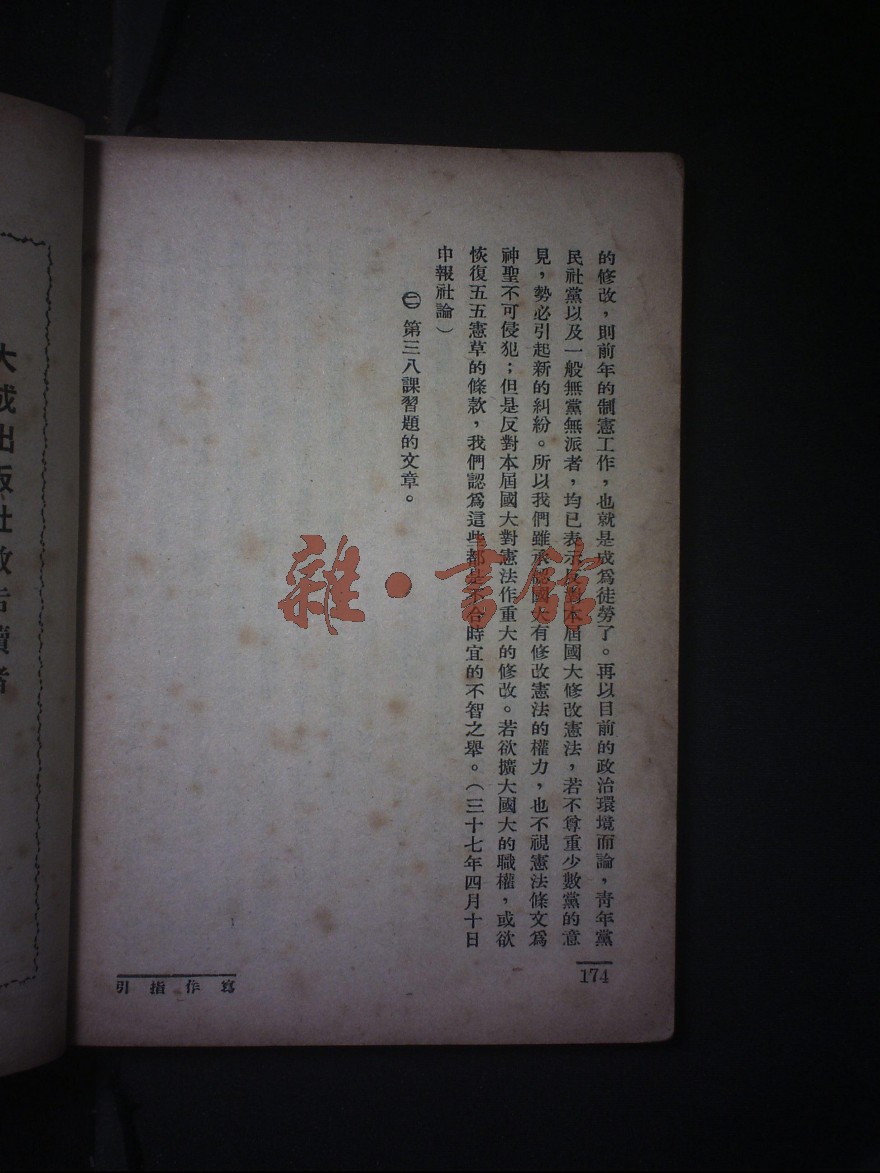 的修改，則前年的制憲工作，也就是成爲徒勞了。再以目前的政治環境而論，青年黨
民社黨以及一般無黨無派者，均已表示反對本屆國大修改憲法，若不尊重少數黨的意
見，勢必引起新的糾紛。所以我們雖承認國大有修改憲法的權力，也不視憲法條文爲
神聖不可侵犯；但是反對本屆國大對憲法作重大的修改。若欲擴大國大的職權，或欲
恢復五五憲草的條款，我們認爲這些都是不合時宜的不智之舉。（三十七年四月十日
申報社論）
㊁ 第三八課習題的文章。
174
引指作寫
大成出版社敬告讀者
雜·書館